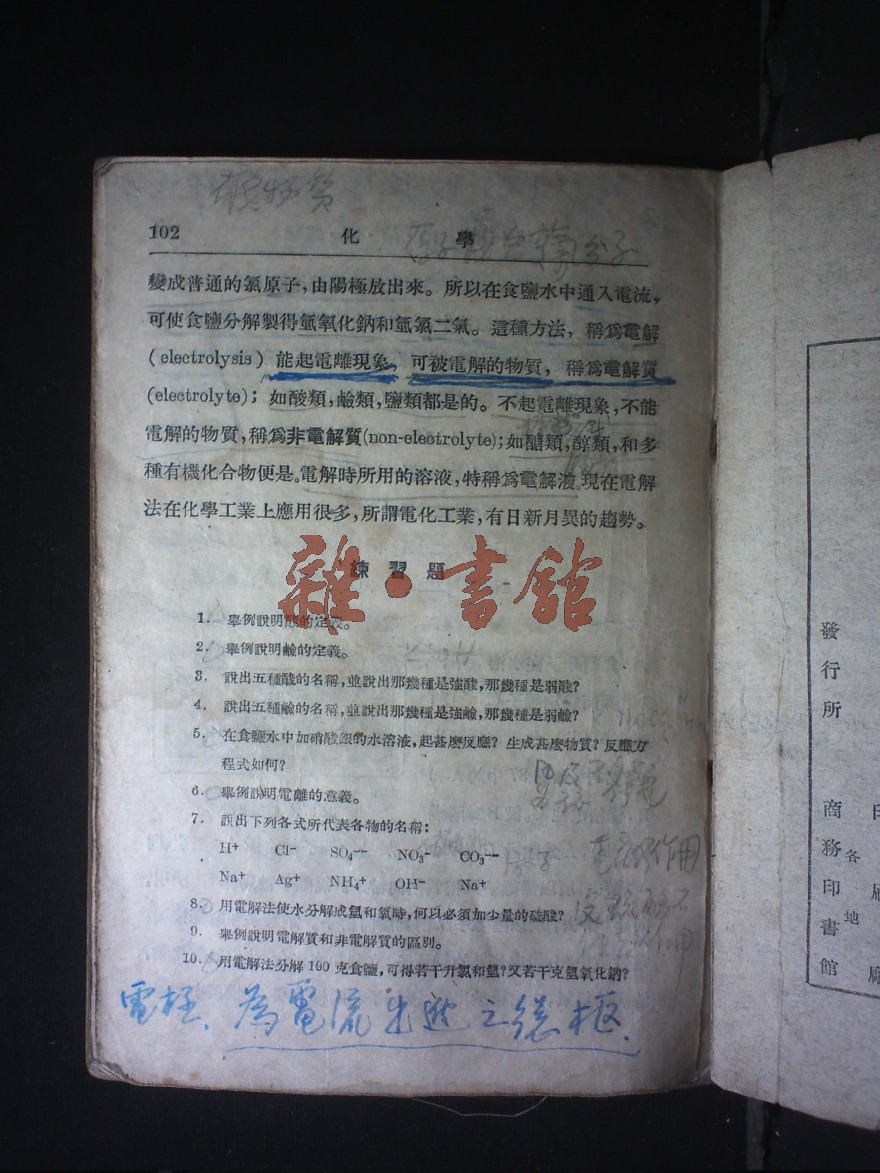 102
化 學
變成普通的氯原子,由陽極放出來。所以在食鹽水中通入電流,
可使食鹽分解製得氫氧化鈉和氫氯二氣。這種方法,稱爲電解
(electrolysis) 能起電離現象,可被電解的物質,稱爲電解質
(electrolyte);如酸類,鹼類,鹽類都是的。不起電離現象,不能
電解的物質,稱爲非電解質(non-electrolyte);如醣類,醇類,和多
種有機化合物便是。電解時所用的溶液,特稱爲電解液。現在電解
法在化學工業上應用很多,所謂電化工業,有日新月異的趨勢。
練習題
雜·書館
1. 舉例說明酸的定義。
2. 舉例說明鹼的定義。
3. 說出五種酸的名稱,並說出那幾種是強酸,那幾種是弱酸?
4. 說出五種鹼的名稱,並說出那幾種是強鹼,那幾種是弱鹼?
5. 在食鹽水中加硝酸銀的水溶液,起甚麽反應?生成甚麽物質?反應方
程式如何?
6. 舉例說明電離的意義。
7. 說出下列各式所代表各物的名稱:
H+ Cl- SO4-- NO3- CO3--
Na+ Ag+ NH4+ OH- Na+
8. 用電解法使水分解成氫和氧時,何以必須加少量的硫酸?
9. 舉例說明電解質和非電解質的區別。
10. 用電解法分解 100 克食鹽,可得若干升氯和氫?又若干克氫氧化鈉?
電極、為電流出
發行所
商務印書館
各地